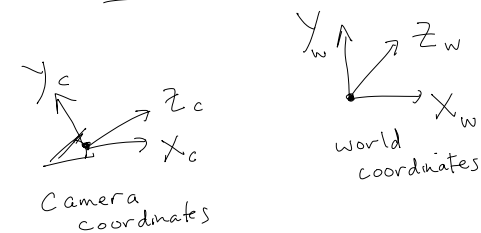 Y_c
Z_c
X_c
Camera
coordinates
Y_w
Z_w
X_w
world
coordinates